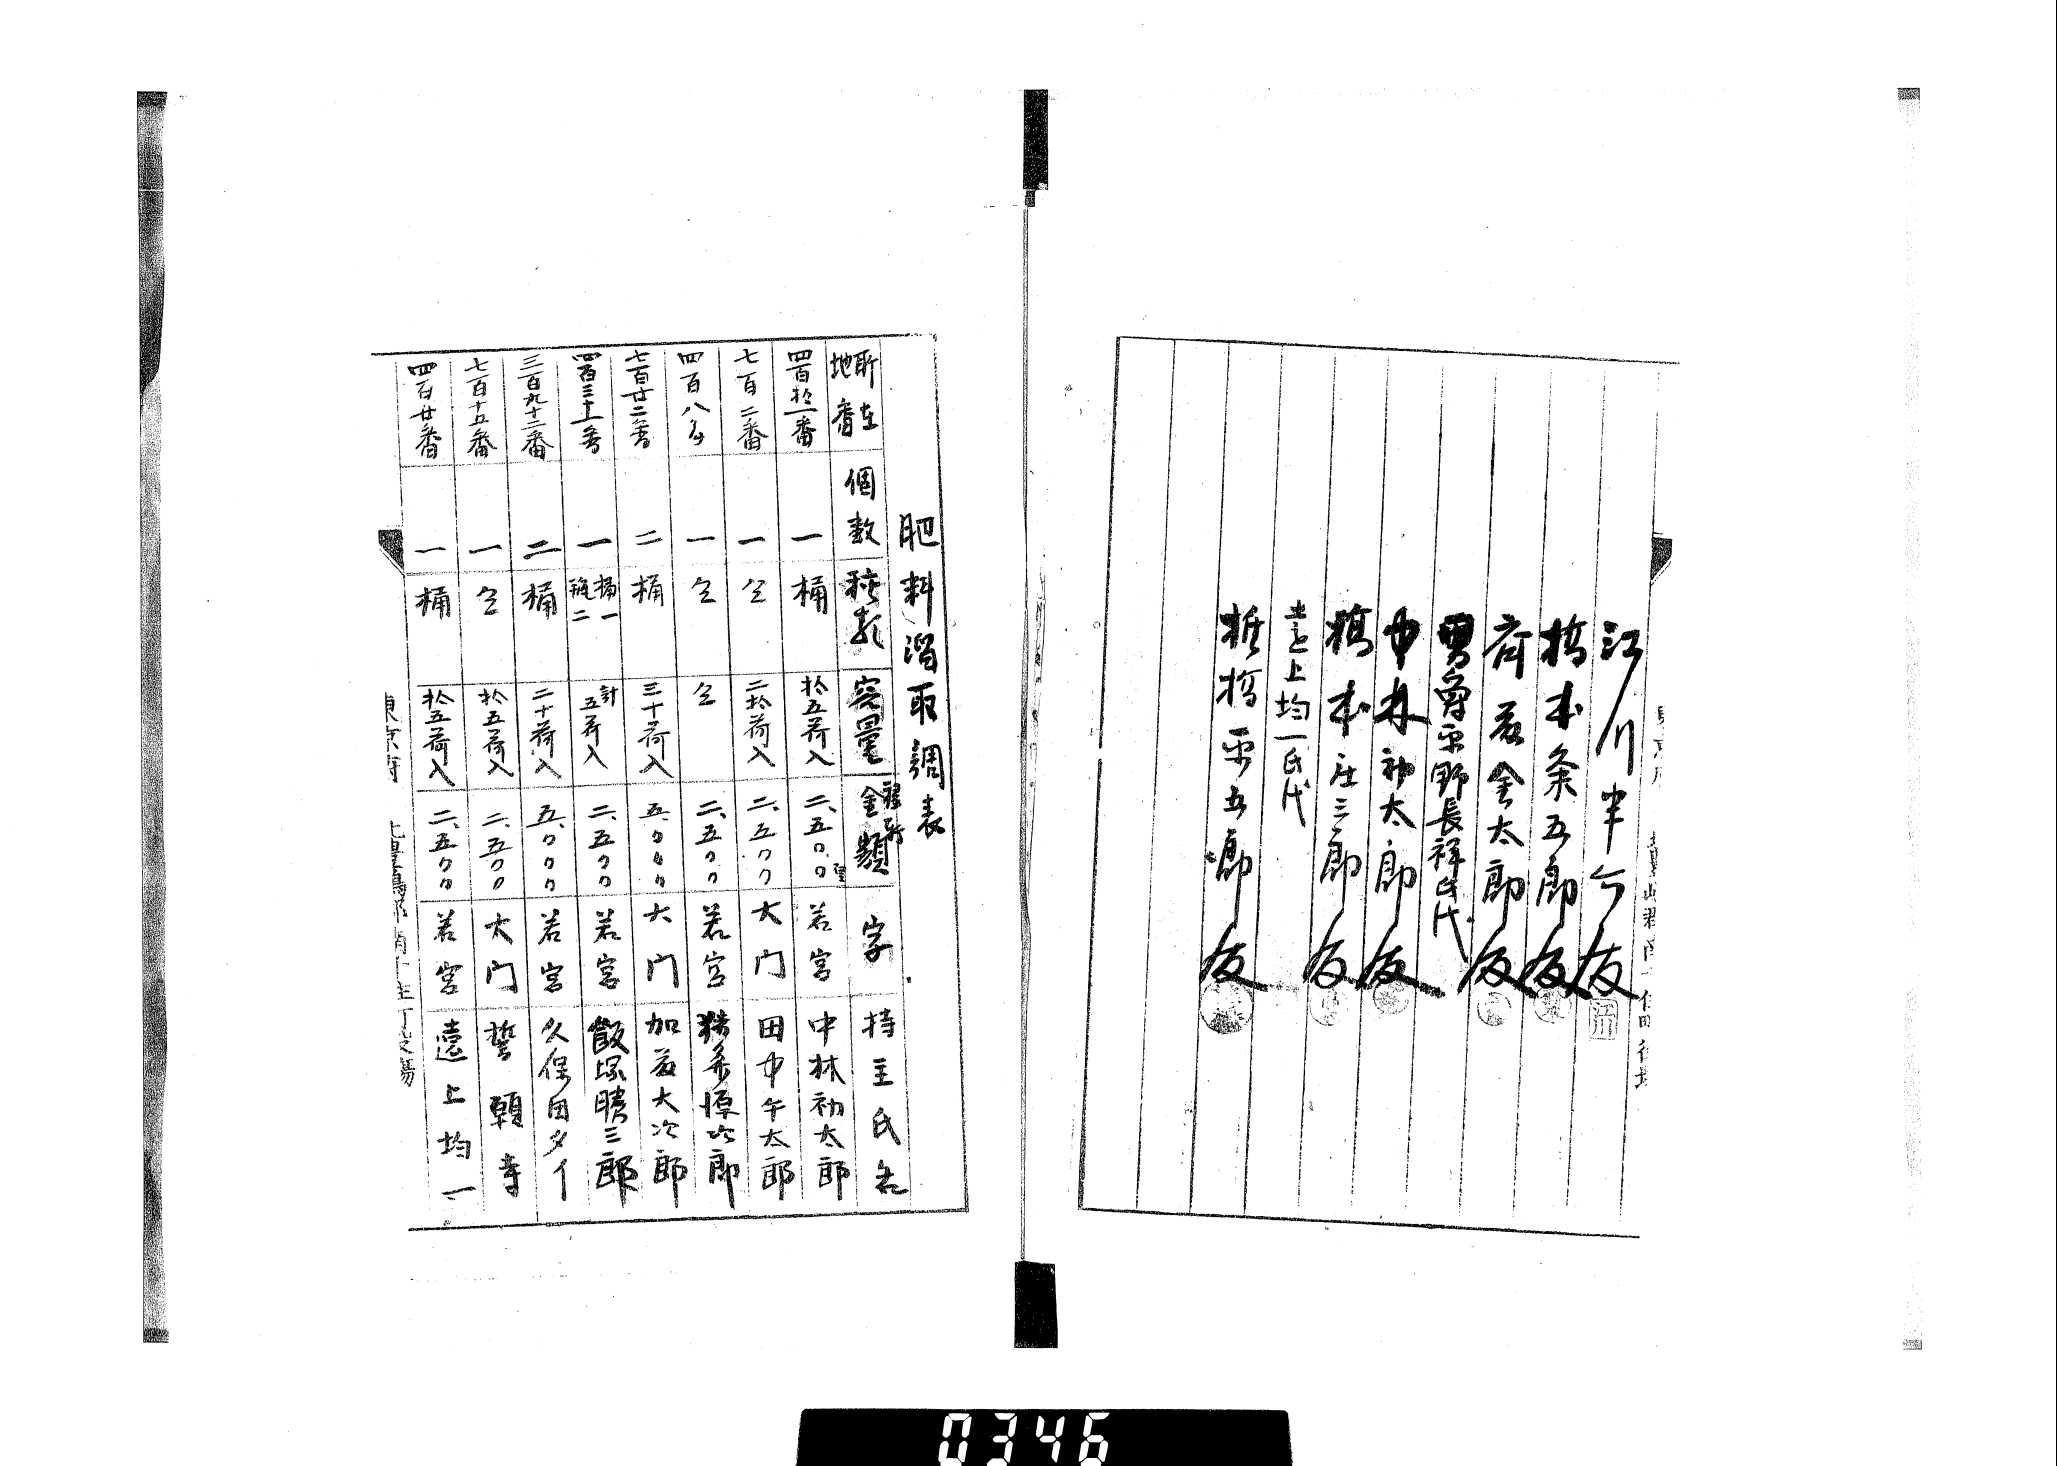 江川半
橋本条五郎
斉藤金太郎
男爵平野長祥氏代
中林初太郎
橋本庄三郎
遠上均一氏代
板橋平五郎
肥料溜取調表
所在地番 個数 種類 容量 金額 字 持主氏名
四百拾一番 一 桶 拾五荷入 二、五〇〇 若宮 中林初太郎
七百二番 一 仝 二拾荷入 二、五〇〇 大门 田中午太郎
四百八番 一 仝 仝 二、五〇〇 若宮
七百廿二番 二 桶 三十荷入 五、〇〇〇 大门 加藤大次郎
一 桶一 瓶二 計五荷入 二、五〇〇 若宮 飯塚勝三郎
三百九十三番 二 桶 二十荷入 五、〇〇〇 若宮 久保田タイ
七百十五番 一 仝 拾五荷入 二、五〇〇 大门 誓願寺
四百廿番 一 桶 拾五荷入 二、五〇〇 若宮 遠上均一
東京府
0346